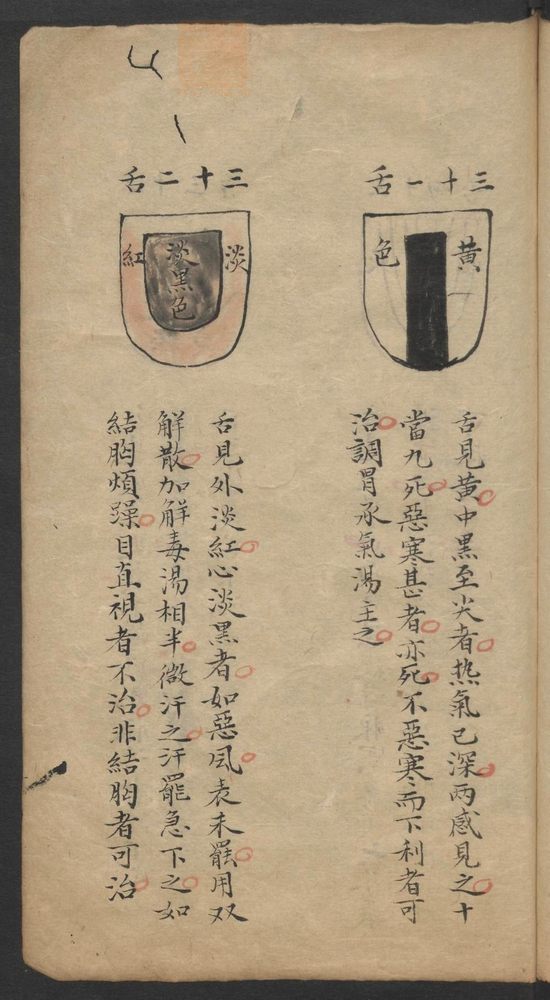 三十一舌
黄色
舌見黄中黑至尖者热氣已深两感見之十
當九死惡寒甚者亦死不惡寒而下利者可
治調胃承氣湯主之
三十二舌
淡紅
淡黑色
舌見外淡紅心淡黑者如惡風表未罷用双
解散加解毒湯相半微汗之汗罷急下之如
結胸煩躁目直視者不治非結胸者可治